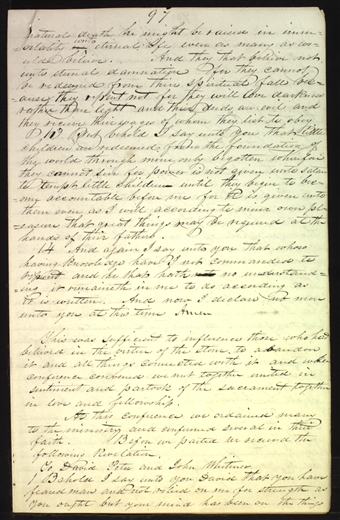 97.
natural death he might be raise in imm-
ortality unto eternal life even as many as wo-
uld believe. And they that believe not
unto eternal damnation for they cannot
be redeemed from their spiritual fall bec-
ause they repent not for they will love darkness
rather than light and their deeds are evil and
they receive their wages of whom they list to obey
13 But behold I say unto you that little
children are redeemed from the foundation of
the world through mine only begotten wherefore
they cannot sin for power is not given unto Satan
to tempt little children until they begin to bec-
ome accountable before me for it is given unto
them even as I will according to mine own ple-
asure that great things may be required at the
hands of their fathers
14 And again I say unto you that whoso
having knowledge have I not commanded to
repent and he that hath no understand-
ing it remaineth in me to do according as
it is written. And now I declare no more
unto you at this time Amen
This was sufficient to influence those who had
believed in the virtue of the stone, to abandon
it and all things connected with it and when
conference convened we met together united in
sentiment and partook of the sacrament together
in love and fellowship.
At this conference we ordained many
to the ministry and confirmed several in their
faith. Before we parted we received the
following Revelation.
To David Peter and John Whitmer
1 Behold I say unto you David that you have
feared man and not relied on me for strength as
you ought but your mind has been on the things